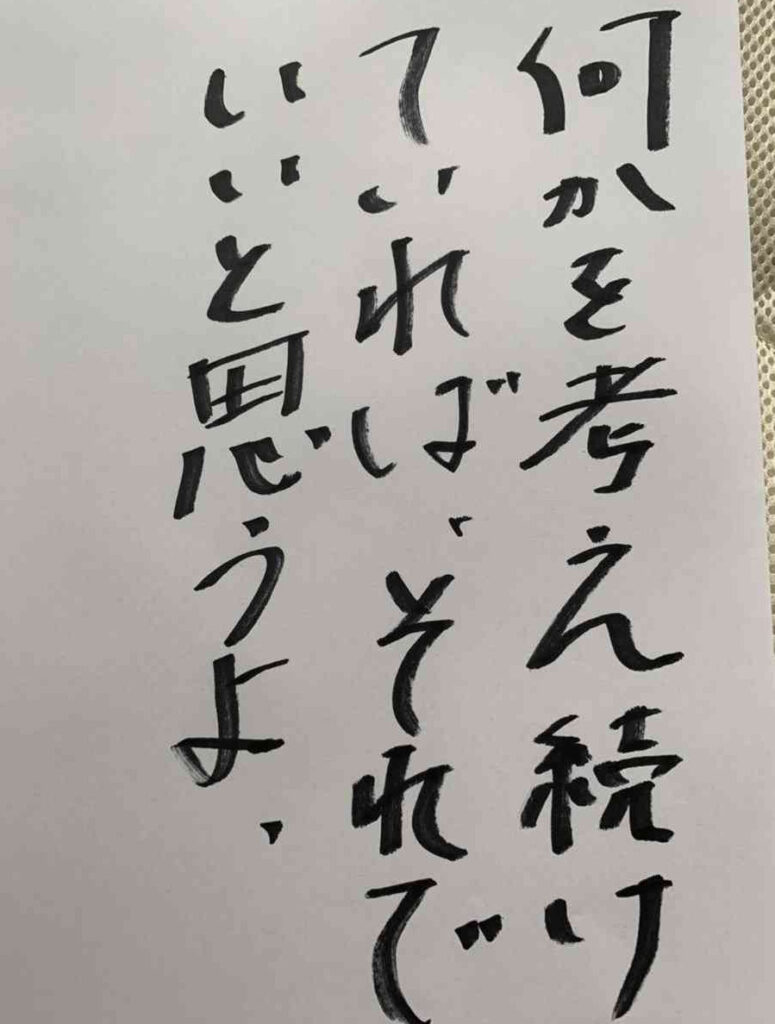 何かを考え続け
ていれば、それで
いいと思うよ、